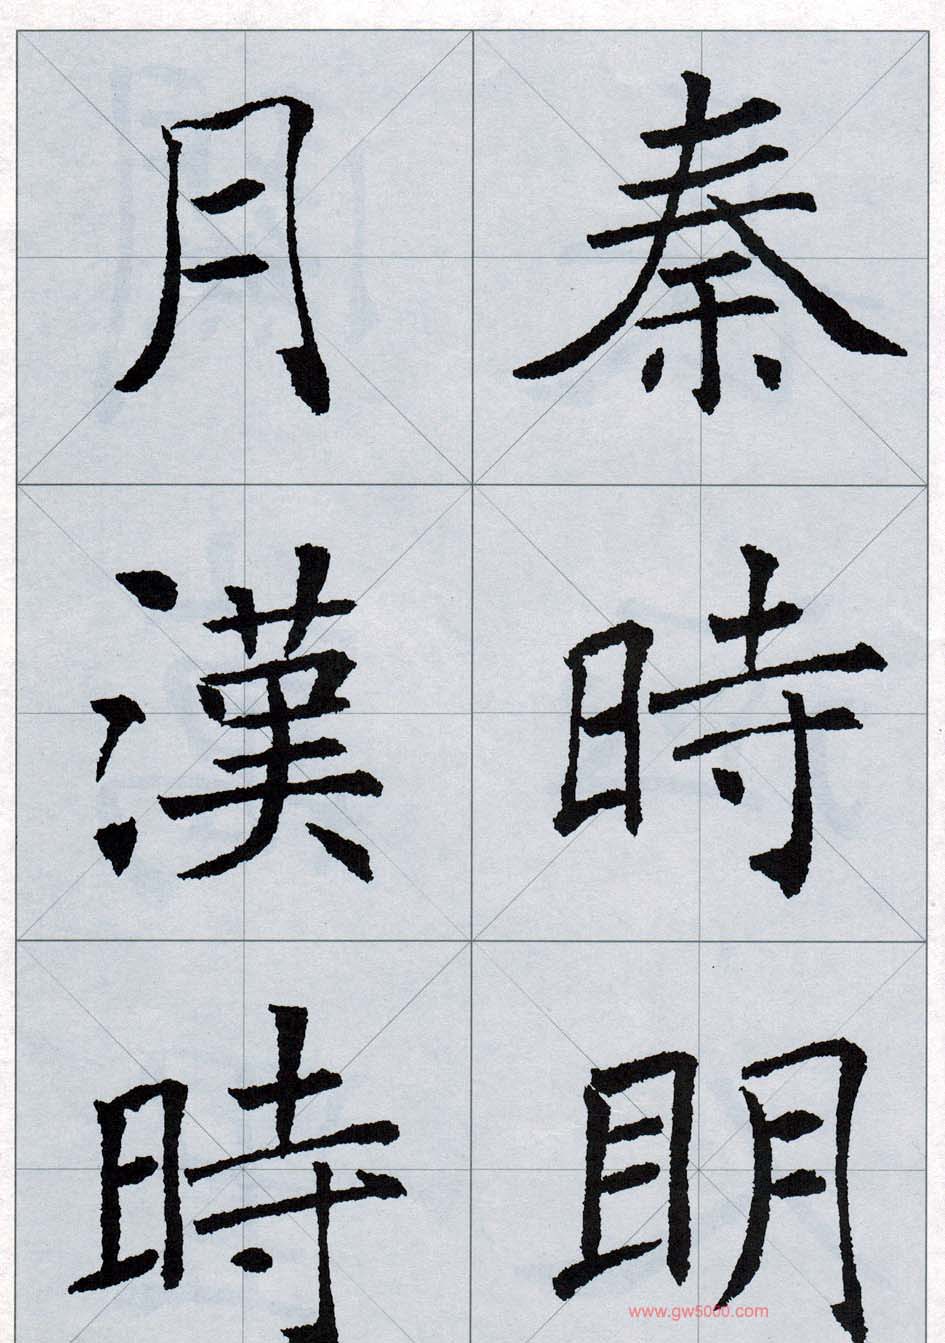 秦時眀
月漢時
www.gw5000.com